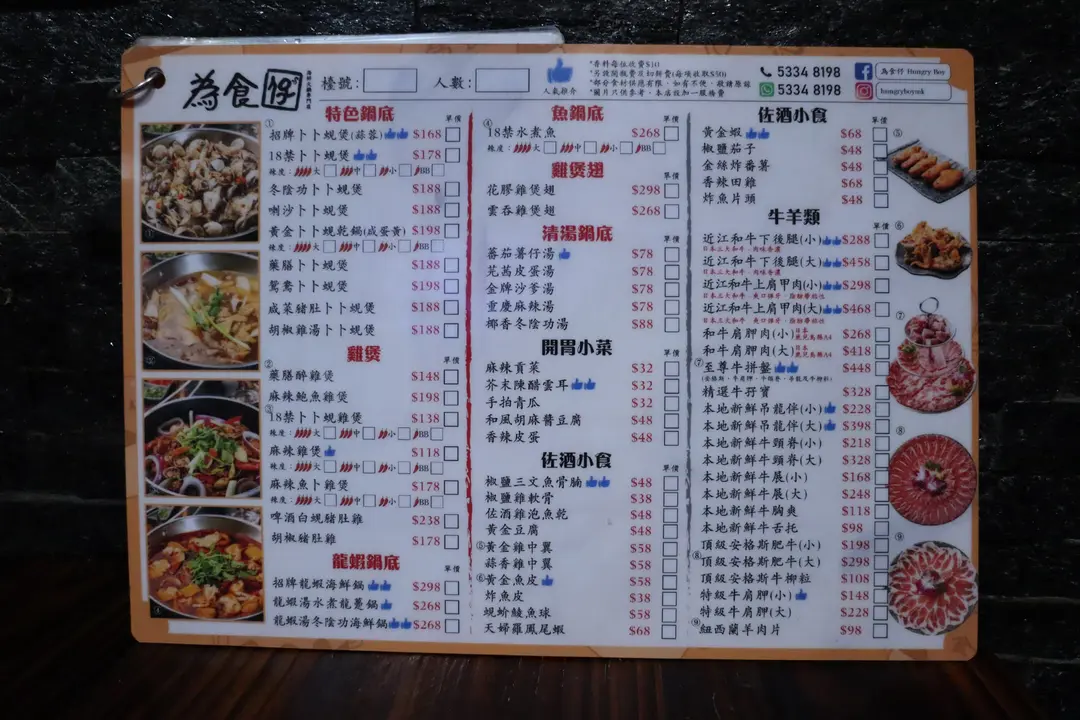 為食仔
為食火鍋專門店
檯號：
人數：
人氣推介
*醬料每位收費$10
*另設開瓶費及切餅費(每項收取$50)
*部分食材供應有限，如有不便，敬請原諒
*圖片只供參考，本店設加一服務費
5334 8198
5334 8198
為食仔 Hungry Boy
hungryboy.mk
特色鍋底
單價
①
招牌卜卜蜆煲(蒜蓉) $168
18禁卜卜蜆煲 $178
辣度： 大 中 小 BB
冬陰功卜卜蜆煲 $188
喇沙卜卜蜆煲 $188
黃金卜卜蜆乾鍋(咸蛋黃) $198
辣度： 大 中 小 BB
藥膳卜卜蜆煲 $188
鴛鴦卜卜蜆煲 $198
咸菜豬肚卜卜蜆煲 $188
胡椒雞湯卜卜蜆煲 $188
雞煲
單價
②
藥膳醉雞煲 $148
麻辣鮑魚雞煲 $198
③
18禁卜卜蜆雞煲 $138
辣度： 大 中 小 BB
麻辣雞煲 $118
辣度： 大 中 小 BB
麻辣魚卜雞煲 $178
辣度： 大 中 小 BB
啤酒白蜆豬肚雞 $238
胡椒豬肚雞 $178
龍蝦鍋底
單價
招牌龍蝦海鮮鍋 $298
龍蝦湯水煮龍躉鍋 $268
龍蝦湯冬陰功海鮮鍋 $268
魚鍋底
單價
④
18禁水煮魚 $268
辣度： 大 中 小 BB
雞煲翅
單價
花膠雞煲翅 $298
雲吞雞煲翅 $268
清湯鍋底
單價
蕃茄薯仔湯 $78
芫茜皮蛋湯 $78
金牌沙爹湯 $78
重慶麻辣湯 $78
椰香冬陰功湯 $88
開胃小菜
單價
麻辣貢菜 $32
芥末陳醋雲耳 $32
手拍青瓜 $32
和風胡麻醬豆腐 $48
香辣皮蛋 $48
佐酒小食
單價
椒鹽三文魚骨腩 $48
椒鹽雞軟骨 $38
佐酒雞泡魚乾 $48
黃金豆腐 $48
⑤黃金雞中翼 $58
蒜香雞中翼 $58
⑥黃金魚皮 $58
炸魚皮 $38
蜆蚧鯪魚球 $58
天婦羅鳳尾蝦 $68
佐酒小食
單價
黃金蝦 $68
椒鹽茄子 $48
金絲炸番薯 $48
香辣田雞 $68
炸魚片頭 $48
牛羊類
單價
近江和牛下後腿(小) $288
日本三大和牛，肉味香濃
近江和牛下後腿(大) $458
日本三大和牛，肉味香濃
近江和牛上肩甲肉(小) $298
近江和牛上肩甲肉(大) $468
和牛肩胛肉(小)日本鹿兒島縣A4 $268
和牛肩胛肉(大)日本鹿兒島縣A4 $418
⑦至尊牛拼盤 $448
精選牛孖寶 $328
本地新鮮吊龍伴(小) $228
本地新鮮吊龍伴(大) $398
本地新鮮牛頸脊(小) $218
本地新鮮牛頸脊(大) $328
本地新鮮牛展(小) $168
本地新鮮牛展(大) $248
本地新鮮牛胸爽 $118
本地新鮮牛舌托 $98
頂級安格斯肥牛(小) $198
⑧頂級安格斯肥牛(大) $298
頂級安格斯牛柳粒 $108
特級牛肩胛(小) $148
特級牛肩胛(大) $228
⑨紐西蘭羊肉片 $98
⑤
⑥
⑦
⑧
⑨